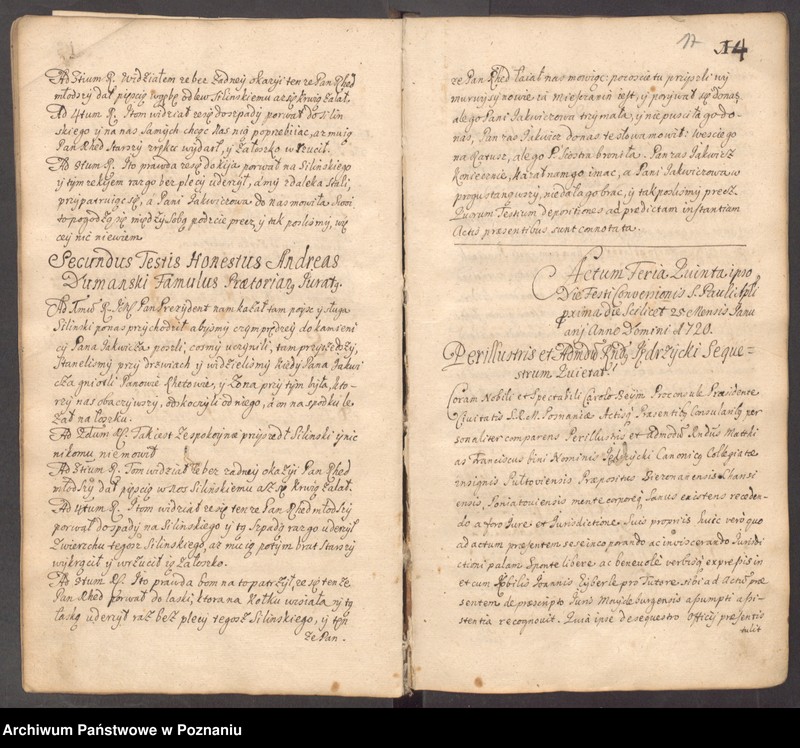 Ad 3tium R. Widziałem ze bez żadney okazyi ten ze Pan Rhed
młodszy dał pięscią w gębę odlew Silinskiemu aż się krwią zalał.
Ad 4tum R. Itom widział ze się do szpady porwał do Silin
skiego y na nas samych chcąc nas nią poprzebijać, aż mu ią
Pan Rhed Starszy z ręku wydarł, y za łoszko wrzucił.
Ad 9tum R. Ito prawda ze się do kija porwał na Silinskiego
y tym ze kijem raz go bez plecy uderzył, a my zdaleka stali,
przypatruiąc się, a Pani Jakwiczowa do nas mowiła
to pogodzą się między sobą podzcie precz, y tak poslismy, wię
cey nic niewiem
Secundus Testis Honestus Andreas
Dumanski Famulus Prætorianus Juratus.
Ad 1mum R. Pan Prezydent nam kazał tam poysc y sługa
Silinski po nas przychodził abysmy czym prędzey do kamieni
cy Pana Jakwicza poszli, cosmy uczynili, tam przyszedszy,
stanelismy przy drzwiach y widzielismy kiedy Pana Jakwi
cza gnietli Panowie Rhetowie, y Zona przy tym była, kto
rzy nas obaczywszy, odskoczyli od niego, a on na spodku le
zał na łoszku.
Ad 2dum R. Tak iest ze spokoynie przyszedł Silinski y nic
nikomu nie mowił
Ad 3tium R. Tom widział ze bez zadney okazyi Pan Rhed
młodszy dał pięscią w nos Silinskiemu asz się krwią zalał.
Ad 4tum R. Itom widział ze się ten ze Pan Rhed młodszy
porwał do szpady na Silinskiego y tą Szpadą raz go uderzył
zwierzchu tegosz Silinskiego, asz mu ią potym brat Starszy
wykręcił y wrzucił za łoszko.
Ad 9tum R. Ito prawda bom na to patrzył, ze się ten ze
Pan Rhed porwał do laski, ktora na kołku wisiała, y tą
laską uderzył raz bez plecy tegosz Silinskiego, y ten
ze Pan.
17 14
ze Pan Rhed łaiał nas mowiąc: po coscie tu przyszli wy
synowie za Mieszczanin iest, y porywał się do nas,
ale go Pani Jakwiczowa trzymała, y nie pusciła go do
nas, Pan zas Jakwicz do nas te słowa mowił: wescie go
na Ratusz, ale go P. Siostra broniła. Pan zas Jakwicz
koniecznie kazał nam go imać, a Pani Jakwiczowa w
progu stanąwszy, nie dała go brać, y tak poslismy precz.
Quorum Testium depositiones ad prædictam instantiam
Actis præsentibus sunt connotata.
Actum Feria Quinta ipso
Die Festi Conversionis S. Pauli Apli
proxima die Scilicet 25 Mensis Janu
arij Anno Domini 1720.
Perillustris et Admodum Rndus Jędrzycki Seque=
strum Quietat.
Coram Nobili et Spectabili Carolo Reÿm Proconsule Præsidente
Civitatis S.R.M. Posnaniæ Actisq. Præsentibus Consularibus per
sonaliter comparens Perillustris et Admodum Rndus Matthi
as Franciscus bini Nominis Jędrzycki Canonicus Collegiatæ
insignis Pultoviensis, Præpositus Biezonarensis
ensis, Poniatoviensis mente corporeq. Sanus existens receden-
do a foro Juris et Jurisdictione Suis proprijs huic vero quo
ad actum præsentem sese incorporando ac inviscerando Jurisdi
ctioni palam Sponte libere ac benevole verbisq. expressis in
et cum Nobilis Joannis Eyberle pro Tutore sibi ad Actum præ
sentem de præscripto Juris Maydeburgensis assumpti assi-
stentia recognovit. Quia ipse de sequestro Officij præsentis
tulit
Archiwum Państwowe w Poznaniu